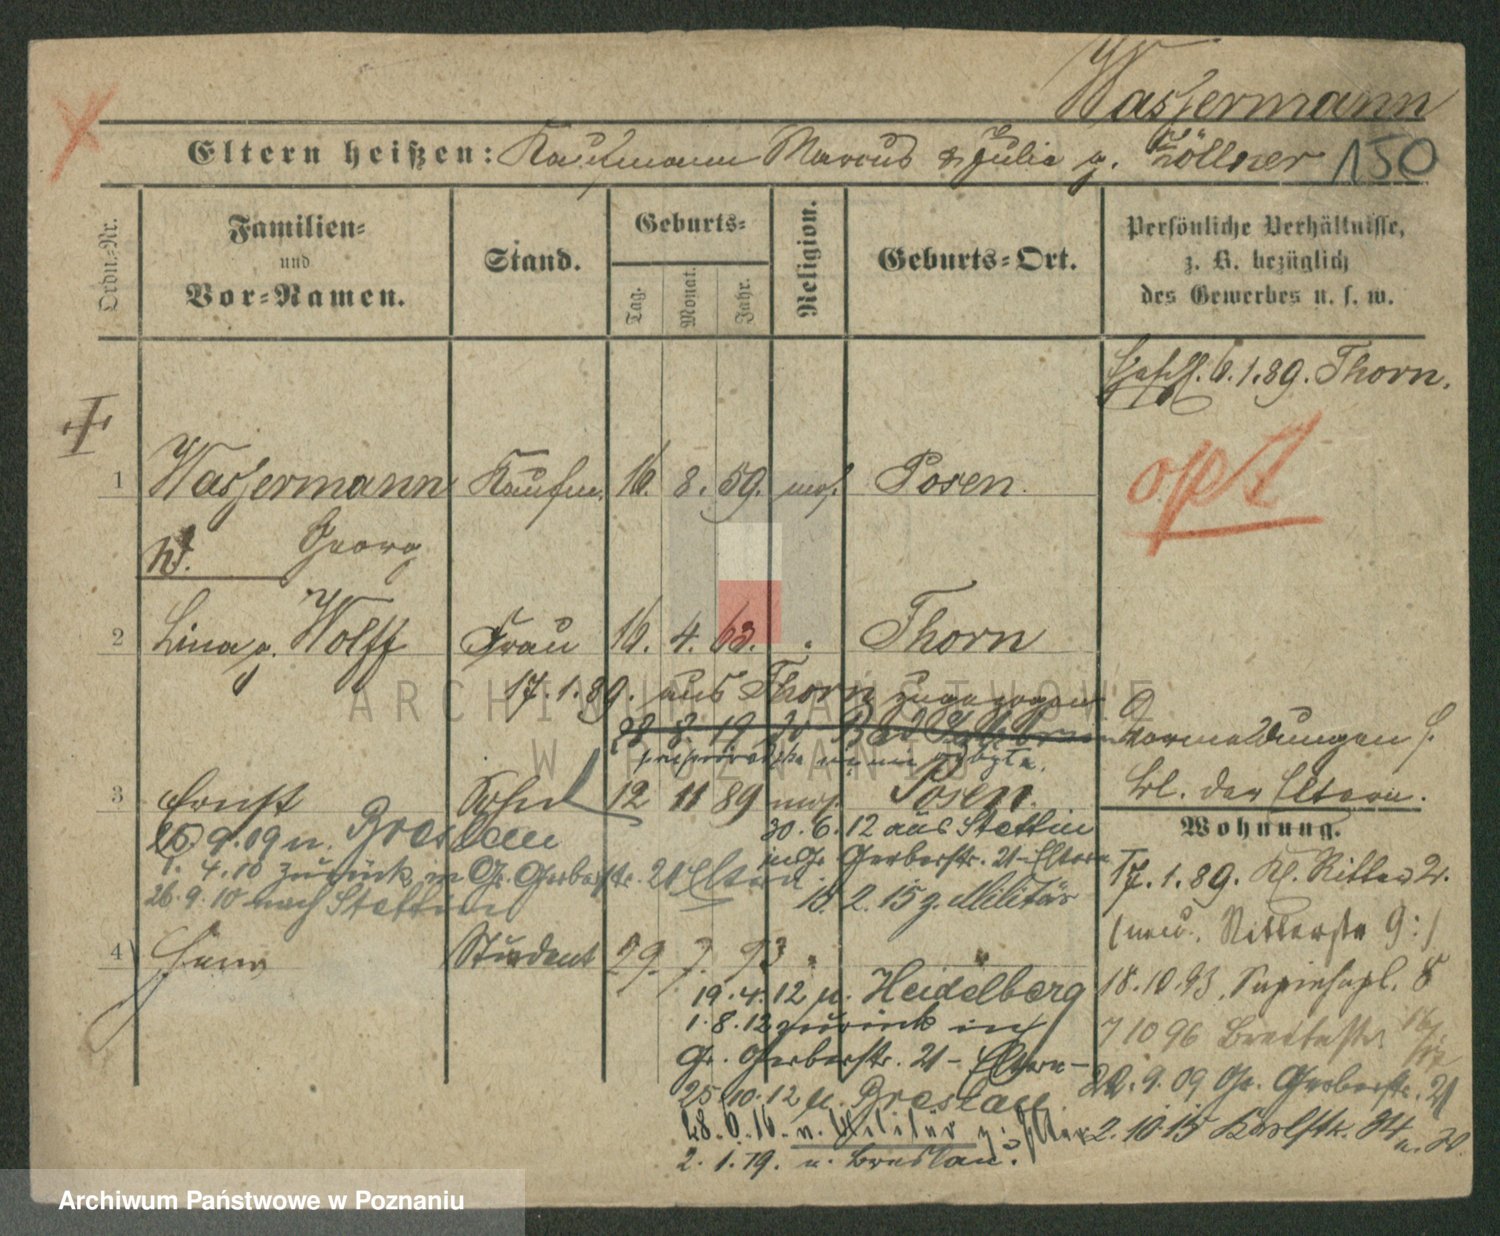 Wassermann
Eltern heißen: Kaufmann Marcus & Julia g. Zöllner 150
Ordn.-Nr.
Familien-
und
Vor-Namen.
Stand.
Geburts-
Tag.
Monat.
Jahr.
Religion.
Geburts-Ort.
Persönliche Verhältnisse,
z. B. bezüglich
des Gewerbes u. s. w.
6.1.89. Thorn.
1 Wassermann Kaufm. 16. 8. 59. mos. Posen.
opt
Georg
2 Lina g. Wolff Frau 16. 4. 63. Thorn
17.1.89. aus Thorn zugezogen
Vormeldungen s.
bl. der Eltern.
3 Ernst Sohn 12 11 89 mos. Posen.
Wohnung.
9.09 n. Breslau
30.6.12 aus Stettin
1.4.10 zurück in Gr. Gerberstr. 21 Eltern
in Gr. Gerberstr. 21 - Eltern
17.1.89. Kl. Ritter 2.
26.9.10 nach Stettin
2.15 z. Militär
(neu. Ritterstr 9:)
4 Student 29. 7. 93 "
18.10.93. Sapiehapl. 8
19.4.12 n. Heidelberg
1.8.12 zurück in
Gr. Gerberstr. 21 - Eltern -
7 10 96 Breitestr.
22.9.09 Gr. Gerberstr. 21
25.10.12 n. Breslau
28.6.16. n. Militär
2.10.15 Karlstr.
2.1.19. n. Breslau.
ARCHIWUM PAŃSTWOWE
W POZNANIU
Archiwum Państwowe w Poznaniu